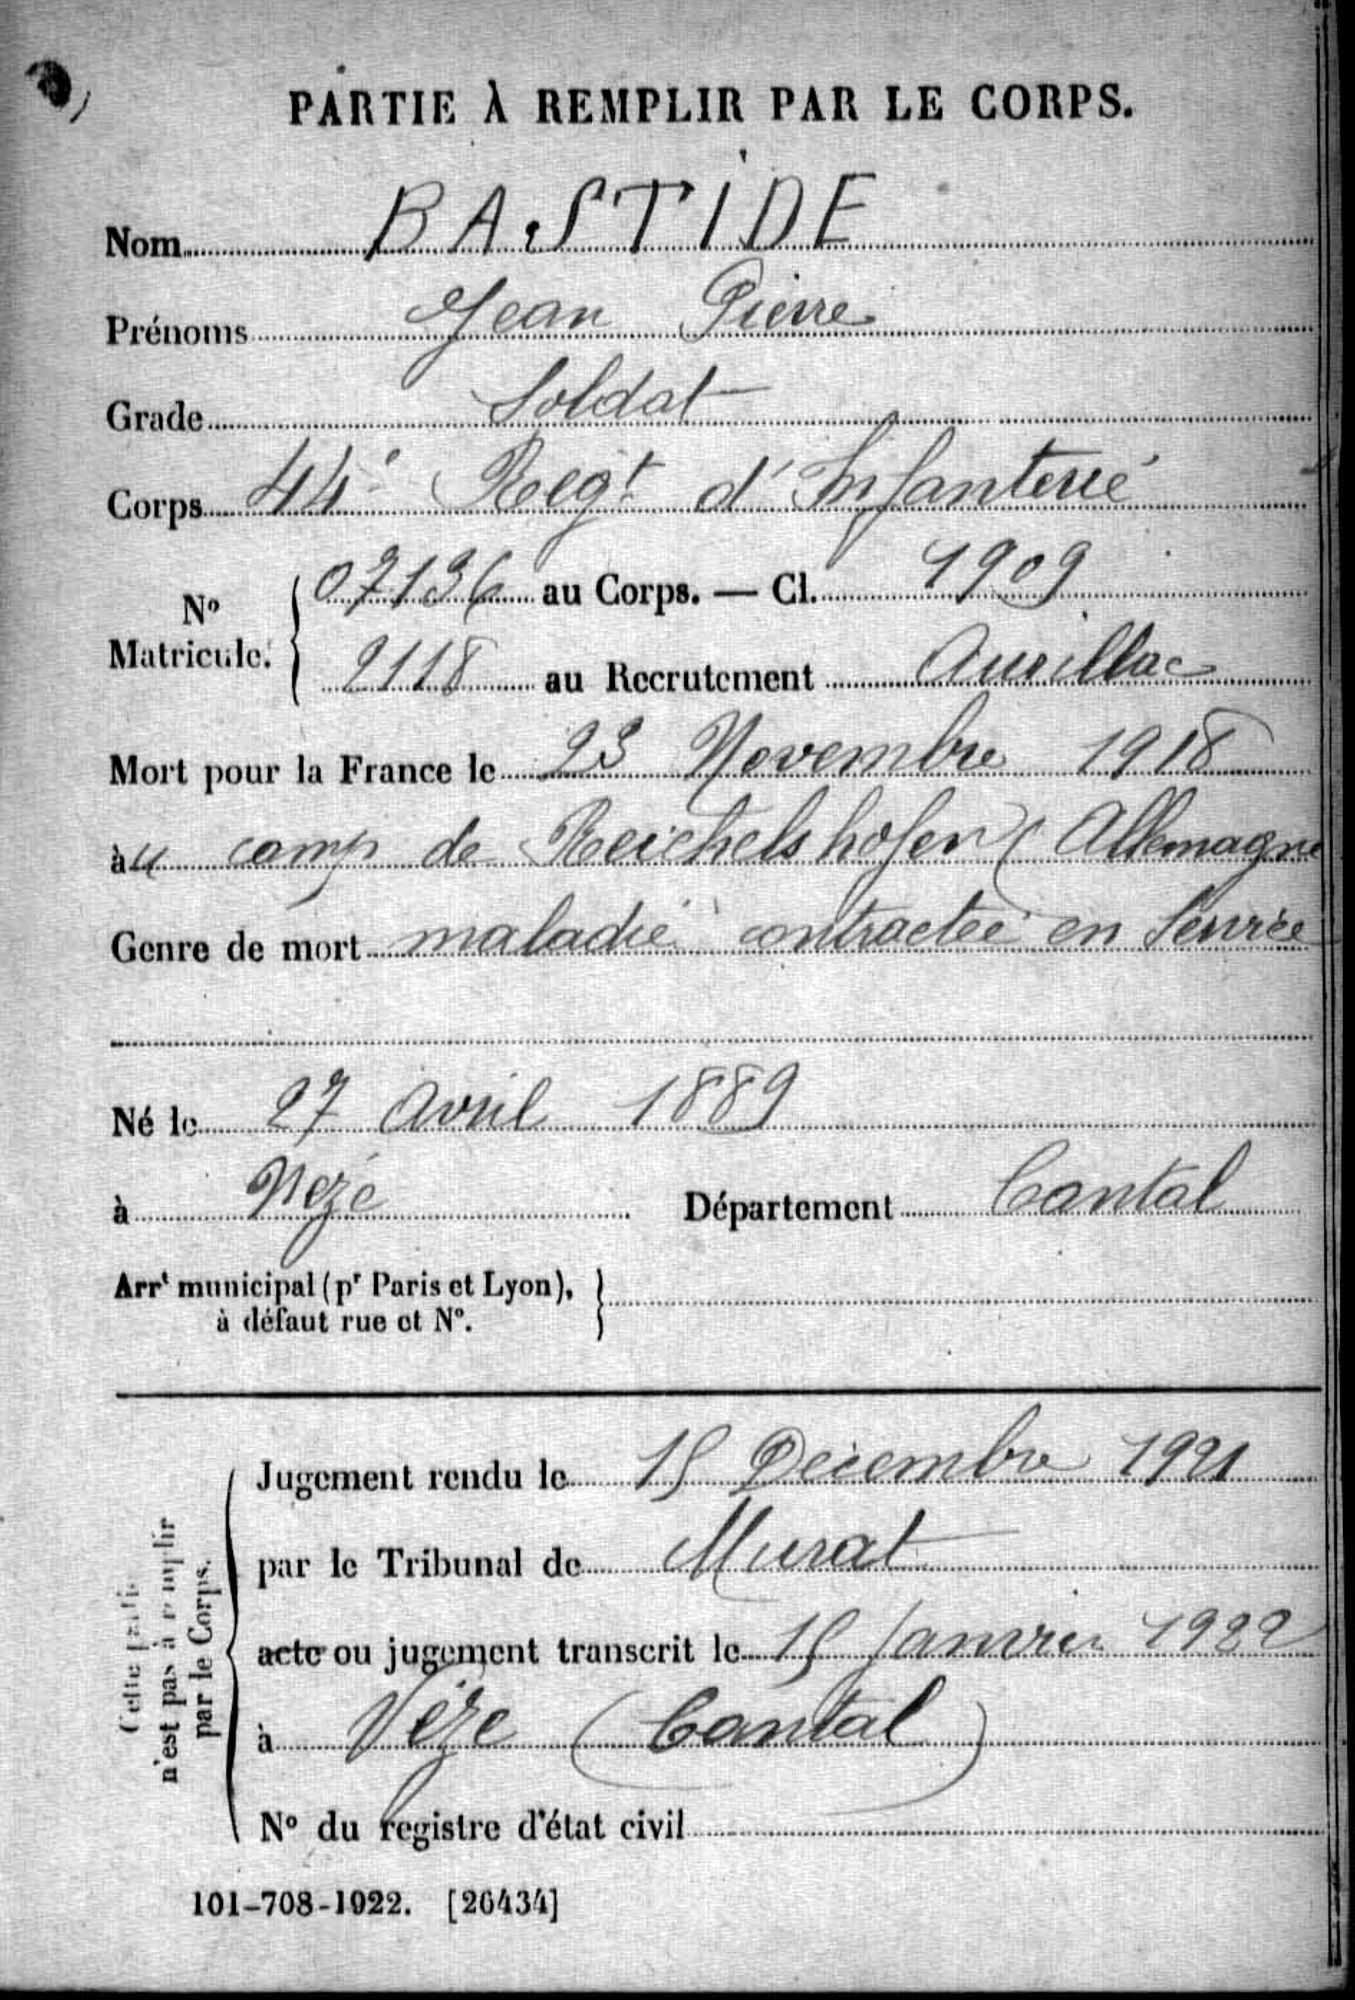 PARTIE À REMPLIR PAR LE CORPS.
Nom BASTIDE
Prénoms Jean Pierre
Grade Soldat
Corps 44e Regt d'Infanterie
No Matricule. 07136 au Corps. — Cl. 1909
2118 au Recrutement Aurillac
Mort pour la France le 23 Novembre 1918
àu camp de Reichelshofen (Allemagne
Genre de mort maladie contractée en Service
Né le 27 Avril 1889
à Vèze Département Cantal
Arrt municipal (pr Paris et Lyon),
à défaut rue et No.
Cette partie
n'est pas à remplir
par le Corps.
Jugement rendu le 15 Décembre 1921
par le Tribunal de Murat
acte ou jugement transcrit le 15 Janvier 1922
à Vèze (Cantal)
No du registre d'état civil
101-708-1922. [26434]